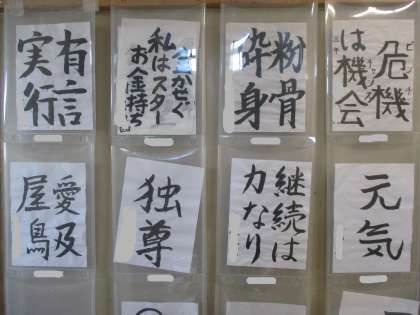 有言
実行
金かせぐ
私はスター
お金持ち
粉骨
砕身
危機
は機会
ピンチ
チャンス
愛及
屋烏
独尊
継続は
力なり
元気